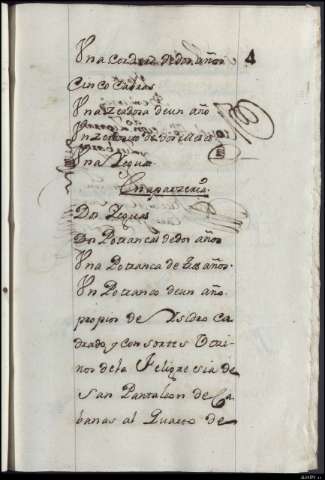 4
Vna Cerdora de dos años
Cinco Cabras
Vna zerdora de un año
Vn zerdito de dos meses
Vna Yegua
En aparzeria
Dos Yeguas
Dos Potrancas de dos años
Vna Potranca de tres años
Vn Potranco de un año
propios de Ysidro Ca
drado, y consortes Vezi
nos dela Feligresia de
San Pantaleon de Ca
banas al Quarto de